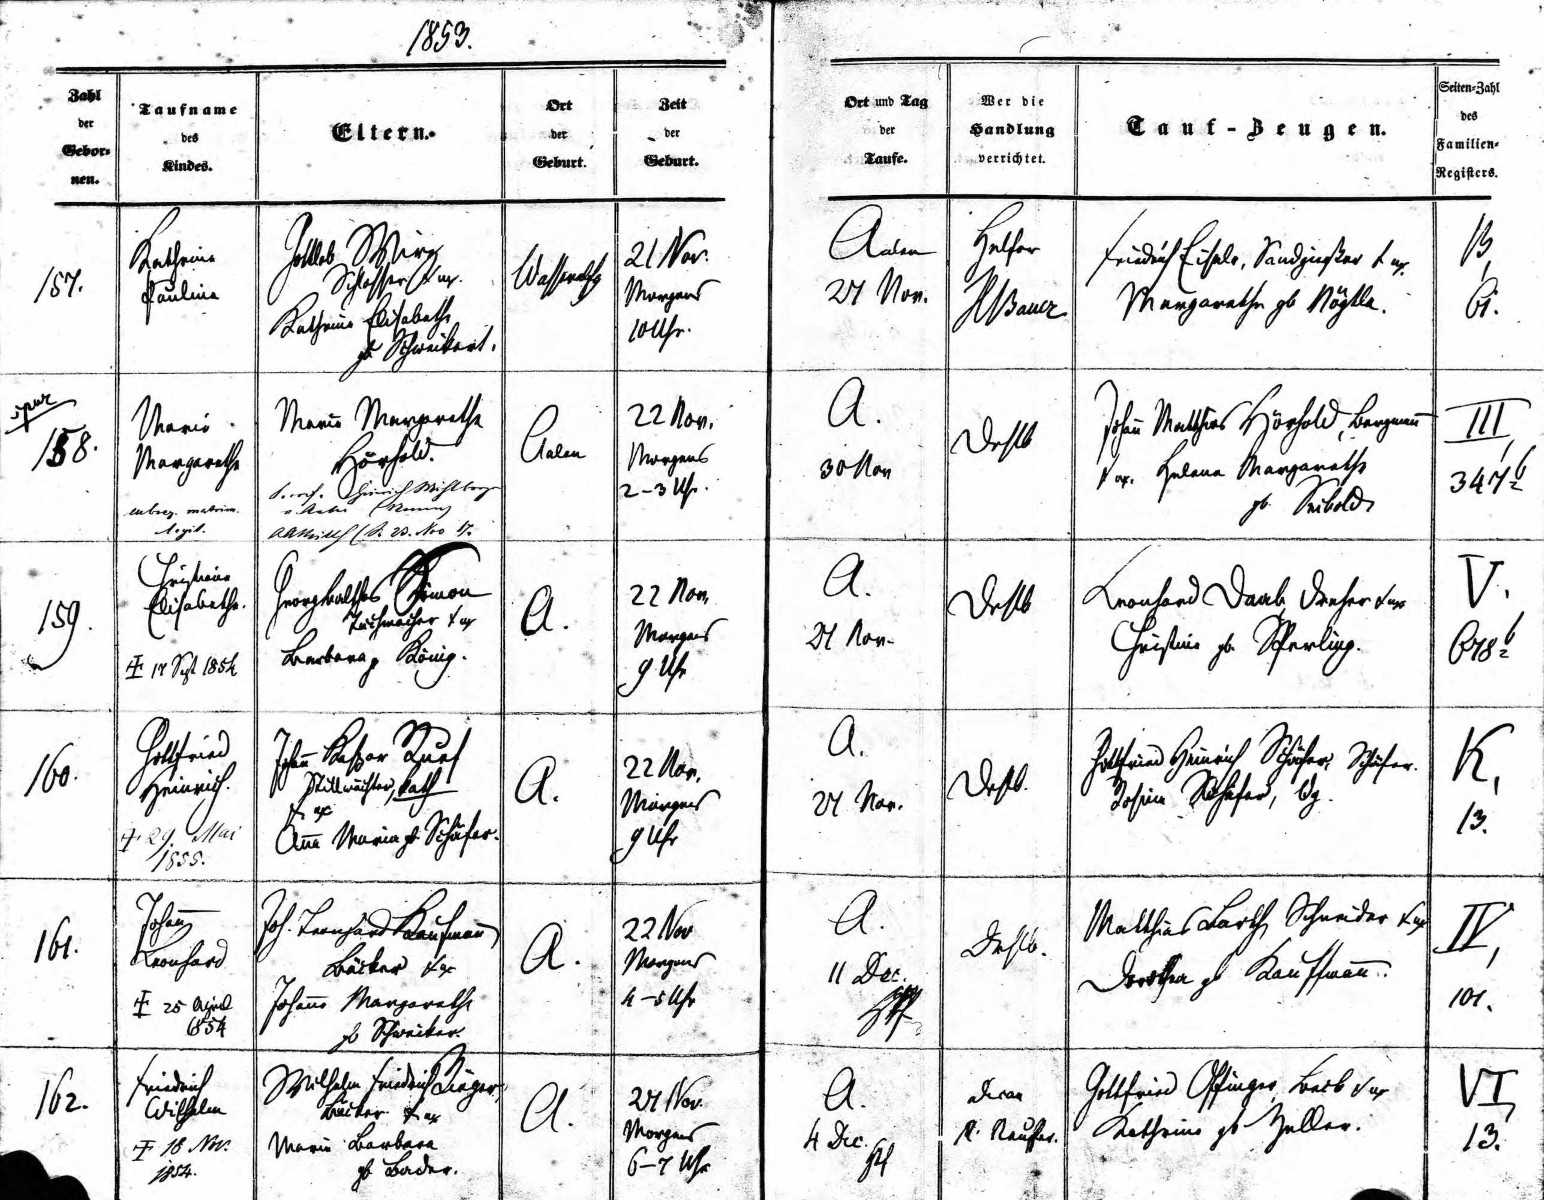 1853.
Zahl
der
Gebor-
nen.
Taufname
des
Kindes.
Eltern.
Ort
der
Geburt.
Zeit
der
Geburt.
Ort und Tag
der
Taufe.
Wer die
Handlung
verrichtet.
Tauf-Zeugen.
Seiten-Zahl
des
Familien-
Registers.
157.
Kathrine
Pauline
Gottlob Wirz
Schlosser & ux.
Kathrine Elisabeth
gb Schweikert.
21 Nov.
Morgens
10 Uhr.
Aalen
27 Nov.
Helfer
Bauer
Friedrich Eisele, Sandgießer & ux.
Margarethe gb
B,
61.
spur
158.
Marie
Margarethe
Marie Margarethe
Hörhold.
Aalen
22 Nov.
Morgens
2-3 Uhr.
A.
30 Nov
Ders.
Johann Matthias Hörhold, Bergmann
& ux. Helena Margarethe
gb. Seibold
III,
347b
159.
Christine
Elisabethe.
† 17 Sept 1854
Georg Balthas Simon
Tuchmacher & ux
Barbara g König.
A.
22 Nov.
Morgens
9 Uhr
A.
27 Nov.
Leonhard Daub, Dreher & ux
Christine gb Sperling.
V.
678b
160.
Gottfried
Heinrich.
† 29. Mai
1855.
Johann Kaspar
kath
& ux
Anna Maria gb Schäfer.
A.
22 Nov.
Morgens
9 Uhr
A.
27 Nov.
Gottfried Heinrich Schäfer, Schäfer.
Schäfer, ldg.
K,
13.
161.
Johann
Leonhard
† 25 April
1854
Joh. Leonhard Kaufmann
Bäcker & ux
Johanna Margarethe
gb Schweiker.
A.
22 Nov
Morgens
4-5 Uhr
A.
11 Dec.
Matthias Barth, Schneider & ux
Dorothea gb Kauffmann.
IV,
101.
162.
Friedrich
Wilhelm
† 18 Nov.
1854.
Wilhelm Friedrich Rieger,
Bäcker & ux
Marie Barbara
gb Bader.
A.
27 Nov.
Morgens
6-7 Uhr
A.
4 Dec.
Decan
Gottfried Offinger, Beck & ux
Kathrine gb Zeller.
VI,
13.